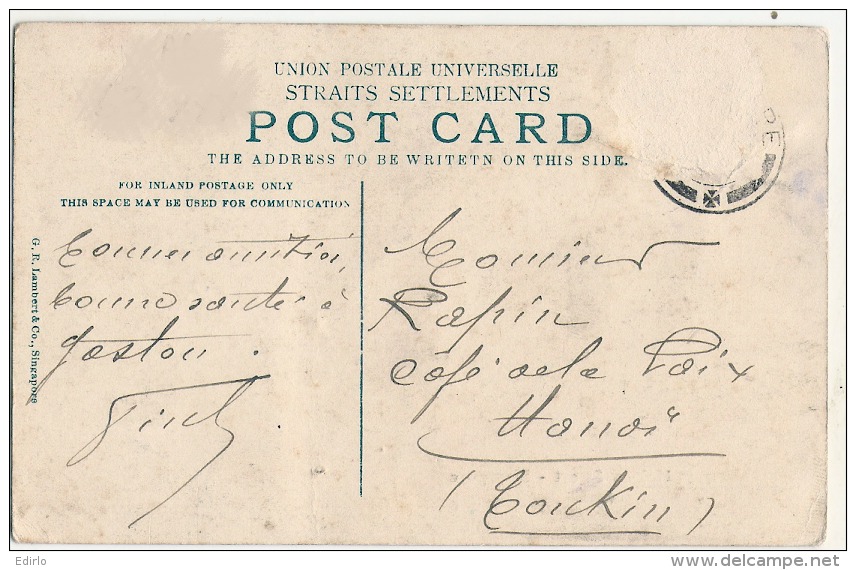 UNION POSTALE UNIVERSELLE
STRAITS SETTLEMENTS
POST CARD
THE ADDRESS TO BE WRITETN ON THIS SIDE.
FOR INLAND POSTAGE ONLY
THIS SPACE MAY BE USED FOR COMMUNICATION
G. R. Lambert & Co., Singapore
Bonne
Bonne santé à
Gaston.
Monsieur
Rapin
Café de la Paix
Hanoï
(Tonkin)
RE
Edirlo
delcampe.net